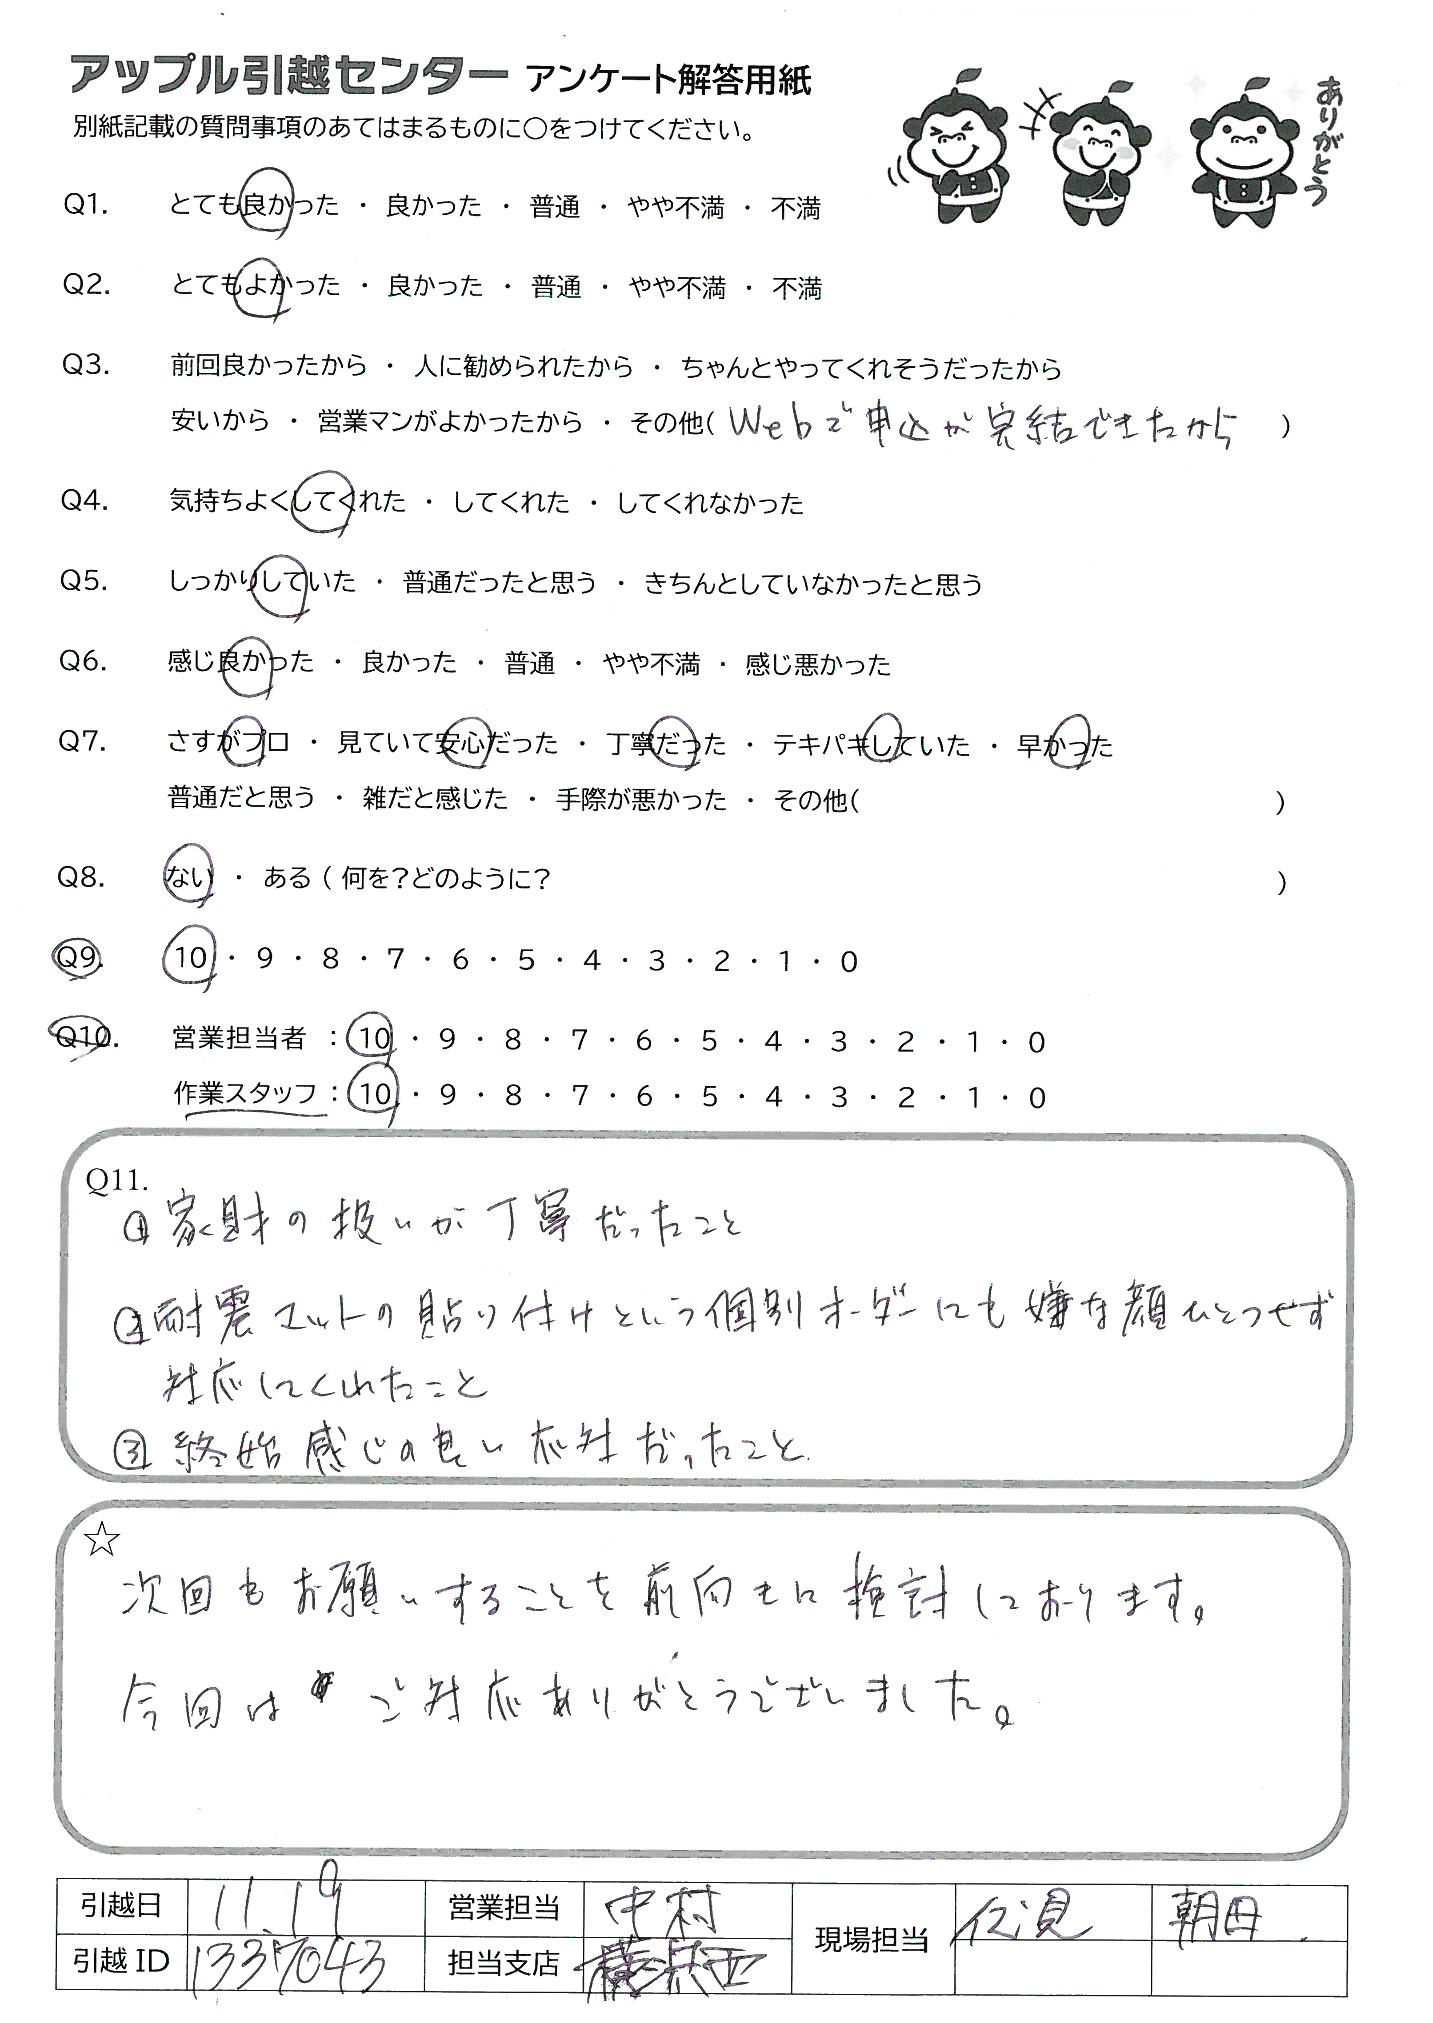 アップル引越センター アンケート解答用紙
別紙記載の質問事項のあてはまるものに○をつけてください。
ありがとう
Q1. とても良かった ・ 良かった ・ 普通 ・ やや不満 ・ 不満
Q2. とてもよかった ・ 良かった ・ 普通 ・ やや不満 ・ 不満
Q3. 前回良かったから ・ 人に勧められたから ・ ちゃんとやってくれそうだったから
安いから ・ 営業マンがよかったから ・ その他( Webで申込が完結できたから )
Q4. 気持ちよくしてくれた ・ してくれた ・ してくれなかった
Q5. しっかりしていた ・ 普通だったと思う ・ きちんとしていなかったと思う
Q6. 感じ良かった ・ 良かった ・ 普通 ・ やや不満 ・ 感じ悪かった
Q7. さすがプロ ・ 見ていて安心だった ・ 丁寧だった ・ テキパキしていた ・ 早かった
普通だと思う ・ 雑だと感じた ・ 手際が悪かった ・ その他( )
Q8. ない ・ ある ( 何を?どのように? )
Q9. 10 ・ 9 ・ 8 ・ 7 ・ 6 ・ 5 ・ 4 ・ 3 ・ 2 ・ 1 ・ 0
Q10. 営業担当者 : 10 ・ 9 ・ 8 ・ 7 ・ 6 ・ 5 ・ 4 ・ 3 ・ 2 ・ 1 ・ 0
作業スタッフ : 10 ・ 9 ・ 8 ・ 7 ・ 6 ・ 5 ・ 4 ・ 3 ・ 2 ・ 1 ・ 0
Q11.
①家財の扱いが丁寧だったこと
②耐震マットの貼り付けという個別オーダーにも嫌な顔ひとつせず
対応してくれたこと
③終始感じの良い応対だったこと.
☆
次回もお願いすることを前向きに検討しております。
今回は ご対応ありがとうございました。
引越日 11.19 営業担当 中村 現場担当 伏見 朝田
引越ID 1337043 担当支店 横浜西